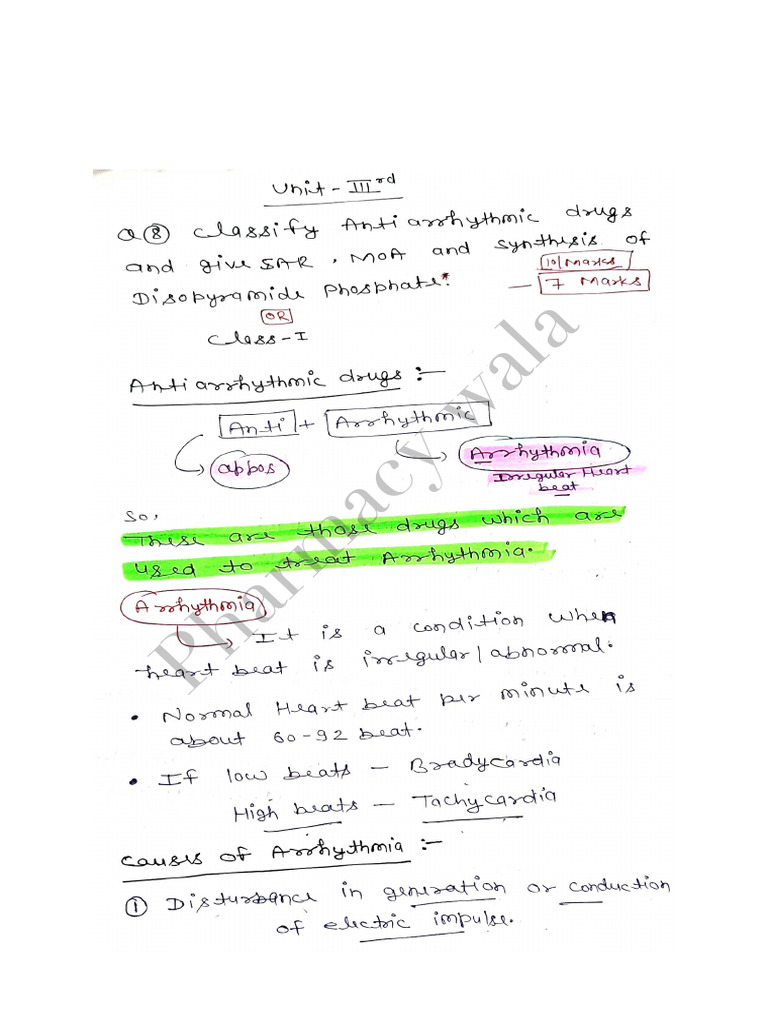 Unit - III rd
Q (8) Classify Anti arrhythmic drugs
and give SAR, MOA and synthesis of
10/Marks
Disopyramide Phosphate.* — 7 Marks
OR
Class-I
Anti arrhythmic drugs :-
Anti + Arrhythmic
appos
Arrhythmia
Irregular Heart
beat
So,
These are those drugs which are
used to treat Arrhythmia.
Arrhythmia
It is a condition when
heart beat is irregular/abnormal.
• Normal Heart beat per minute is
about 60-92 beat.
• If low beats — Bradycardia
High beats — Tachycardia
Causes of Arrhythmia :-
① Disturbance in generation or conduction
of electric impulse.
Pharmacy wala